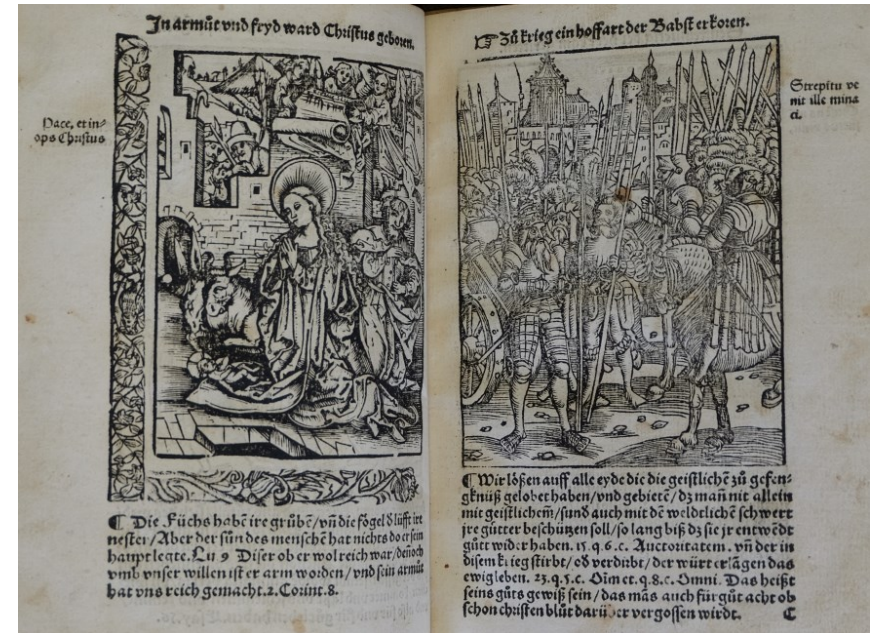 In armůt vnd fryd ward Christus geboren.
Pace, et in=
ops Christus
¶ Die Füchs habē ire grůbē/vñ die fögel d̕ lüfft ire
nester/Aber der sůn des menschē hat nichts do er sein
haupt legte. Lu 9 Diser ob er wol reich war/deñoch
vmb vnser willen ist er arm worden/vnd sein armůt
hat vns reich gemacht.2.Corint.8.
☞ Zů krieg ein hoffart der Babst erkoren.
Strepitu ve
nit ille mina
ci.
¶ Wir lößen auff alle eyde die die geistlichē zů gefen=
gknüß gelobet haben/vnd gebietē/dz mañ nit allein
mit geistlichem/sund̕ auch mit dē weldtlichē schwert
jre gütter beschützen soll/so lang biß dz sie jr entwēdt
gůtt wider haben. 15.q.6.c. Auctoritatem. vñ der in
disem krieg stirbt/od̕ verdirbt/der würt erlāgen das
ewig leben. 23.q.5.c. Oim et.q.8.c. Omni. Das heißt
seins gůts gewiß sein/das mās auch für gůt acht ob
schon christen blůt darüber vergossen wirdt. C